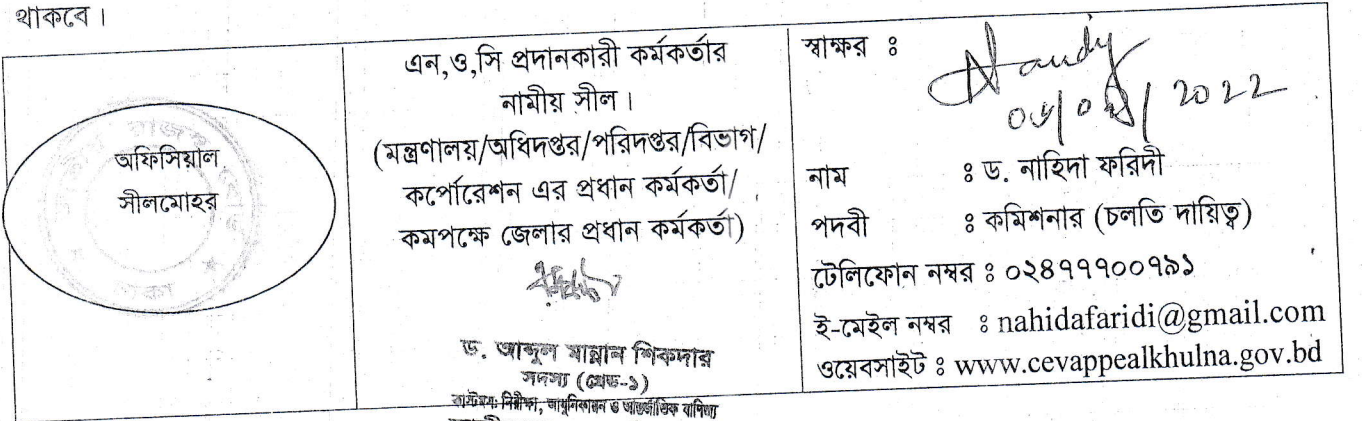 থাকবে।
অফিসিয়াল
সীলমোহর
এন,ও,সি প্রদানকারী কর্মকর্তার
নামীয় সীল।
(মন্ত্রণালয়/অধিদপ্তর/পরিদপ্তর/বিভাগ/
কর্পোরেশন এর প্রধান কর্মকর্তা/
কমপক্ষে জেলার প্রধান কর্মকর্তা)
ড. আব্দুল মান্নান শিকদার
সদস্য (গ্রেড-১)
কাস্টমস: নিরীক্ষা, আধুনিকায়ন ও আন্তর্জাতিক বাণিজ্য
স্বাক্ষর ঃ
2022
নাম ঃ ড. নাহিদা ফরিদী
পদবী ঃ কমিশনার (চলতি দায়িত্ব)
টেলিফোন নম্বর ঃ ০২৪৭৭৭০০৭৯১
ই-মেইল নম্বর ঃ nahidafaridi@gmail.com
ওয়েবসাইট ঃ www.cevappealkhulna.gov.bd